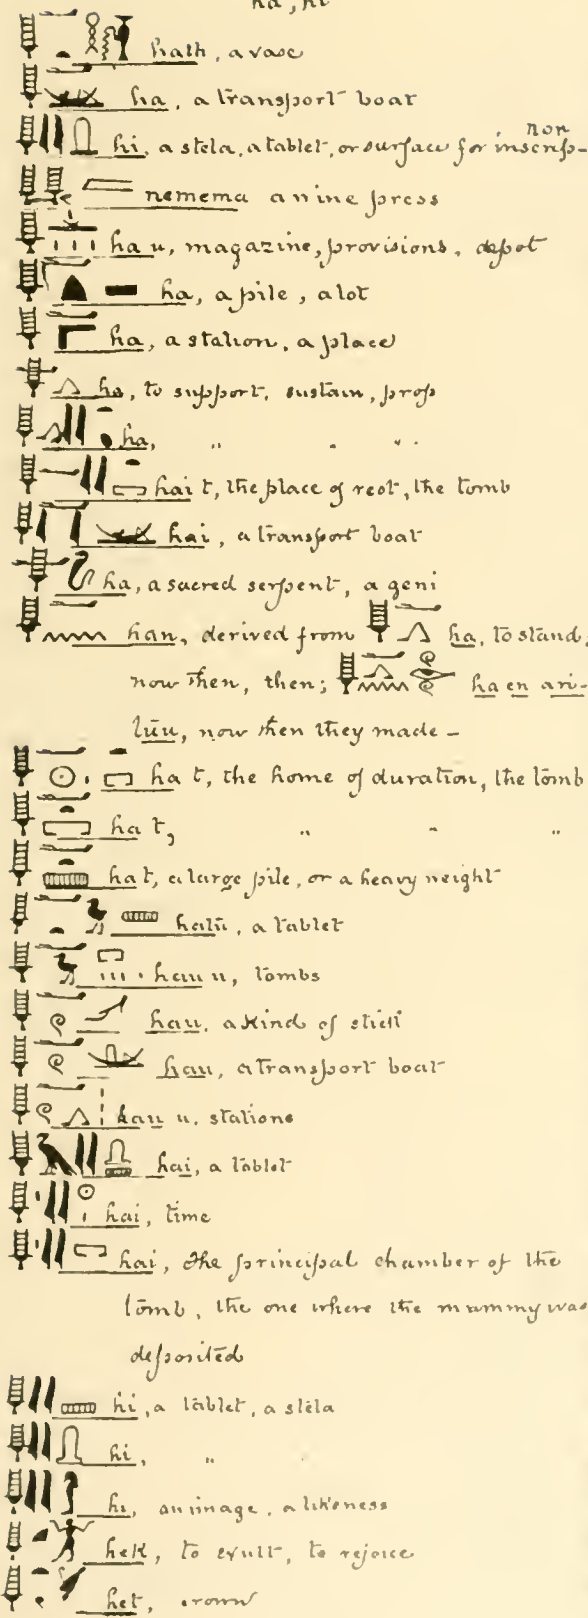 ha, hi
hath, a vase
ha, a transport boat
hi, a stela, a tablet, or surface for inscrip-
tion
nemema a wine press
ha u, magazine, provisions, depot
ha, a pile, a lot
ha, a station, a place
ha, to support, sustain, prop
ha, " " "
hai t, the place of rest, the tomb
hai, a transport boat
ha, a sacred serpent, a geni
han, derived from ha, to stand;
now then, then; ha en ari-
lūu, now then they made –
ha t, the home of duration, the tomb
ha t, " " "
hat, a large pile, or a heavy weight
hatū, a tablet
hau u, tombs
hau, a kind of stick
hau, a transport boat
hau u, stations
hai, a tablet
hai, time
hai, the principal chamber of the
tomb, the one where the mummy was
deposited
hi, a tablet, a stela
hi, "
hi, an image, a likeness
hek, to exult, to rejoice
het, crown